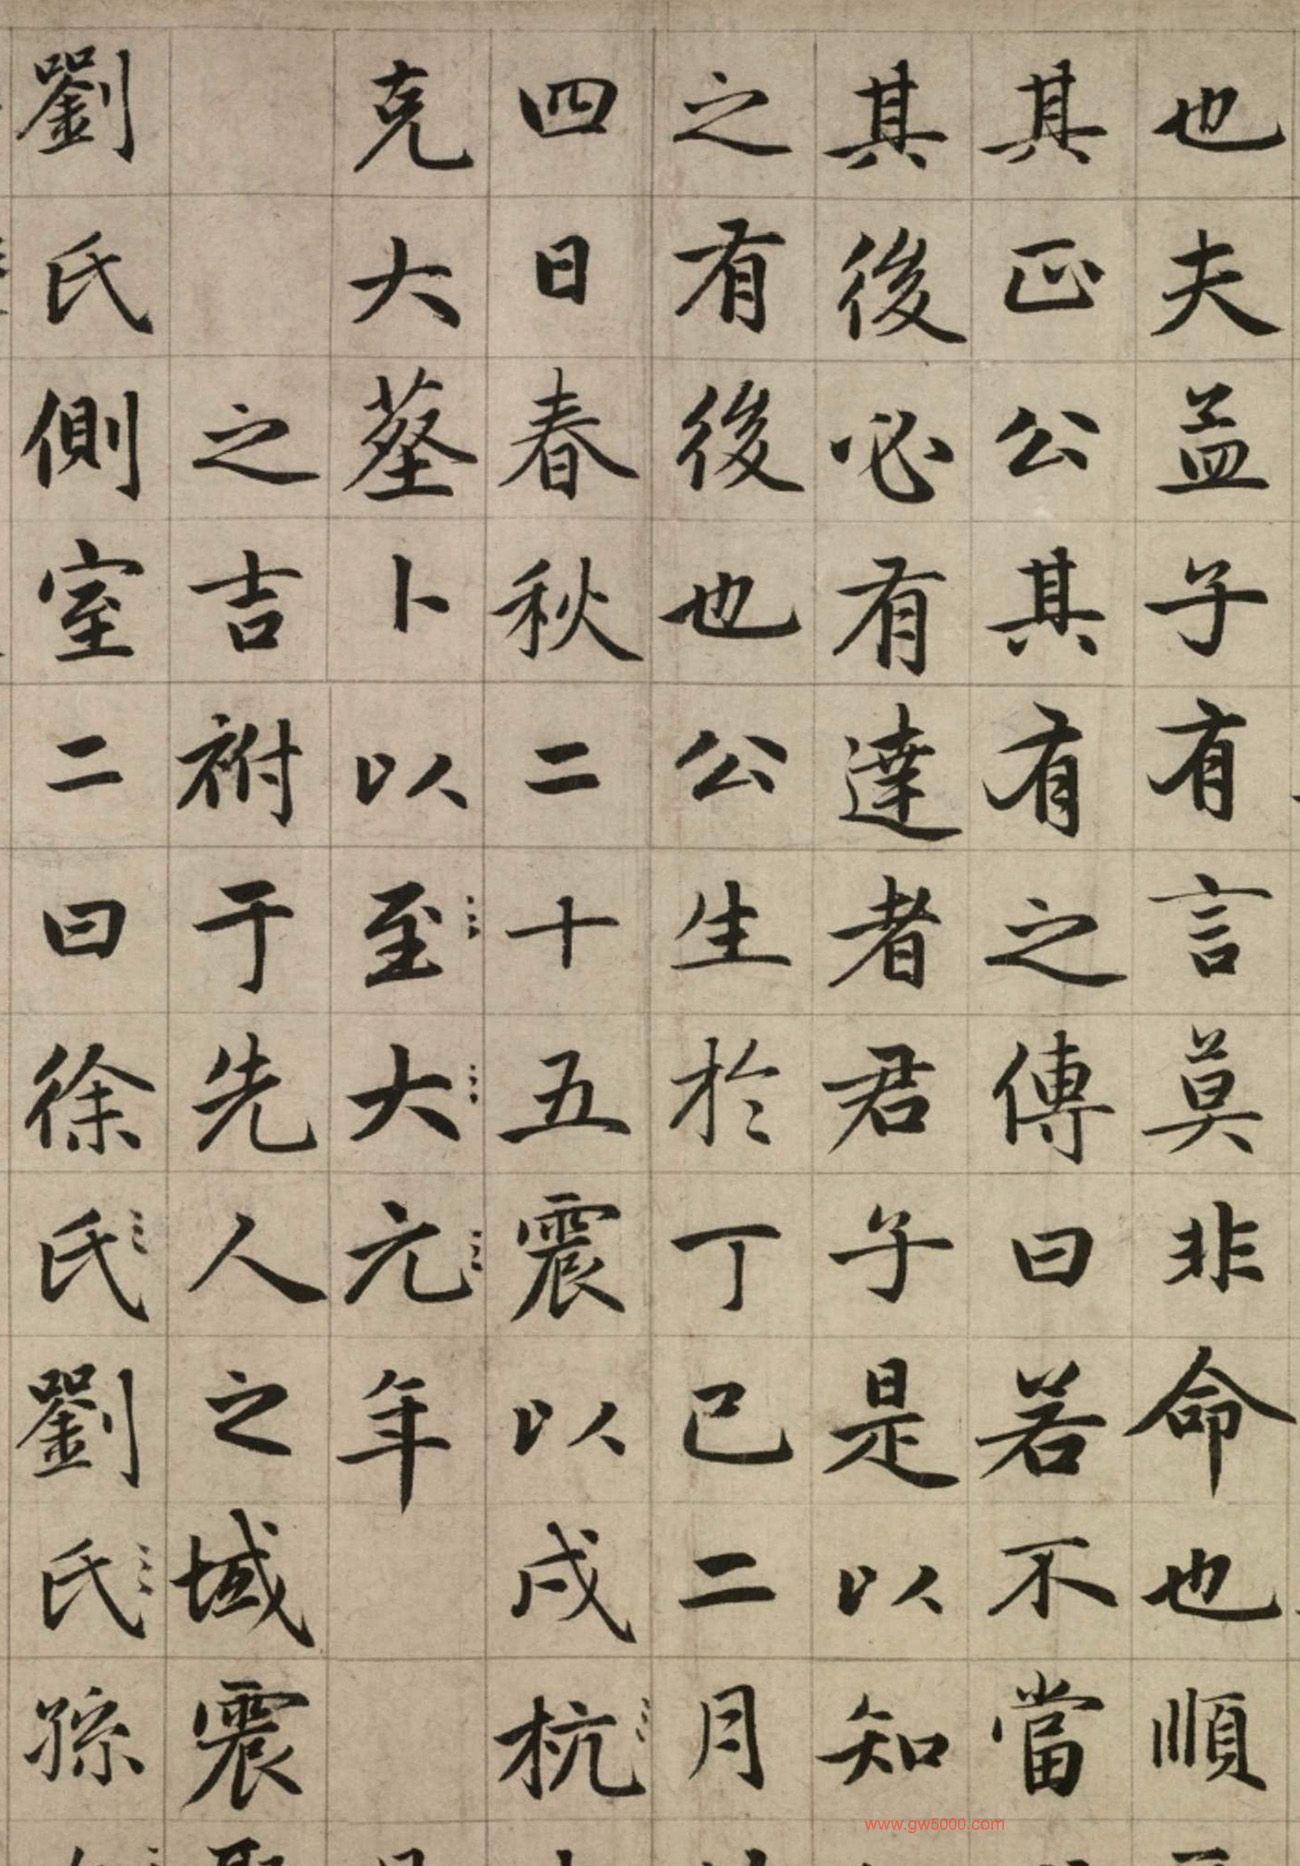 也夫益子有言莫非命也順
其正公其有之傳曰若不當
其後必有達者君子是以知
之有後也公生於丁已二月
四日春秋二十五震以戍杭
克大葬卜以至大元年
之吉祔于先人之域震
劉氏側室二曰徐氏劉氏孫
www.gw5000.com